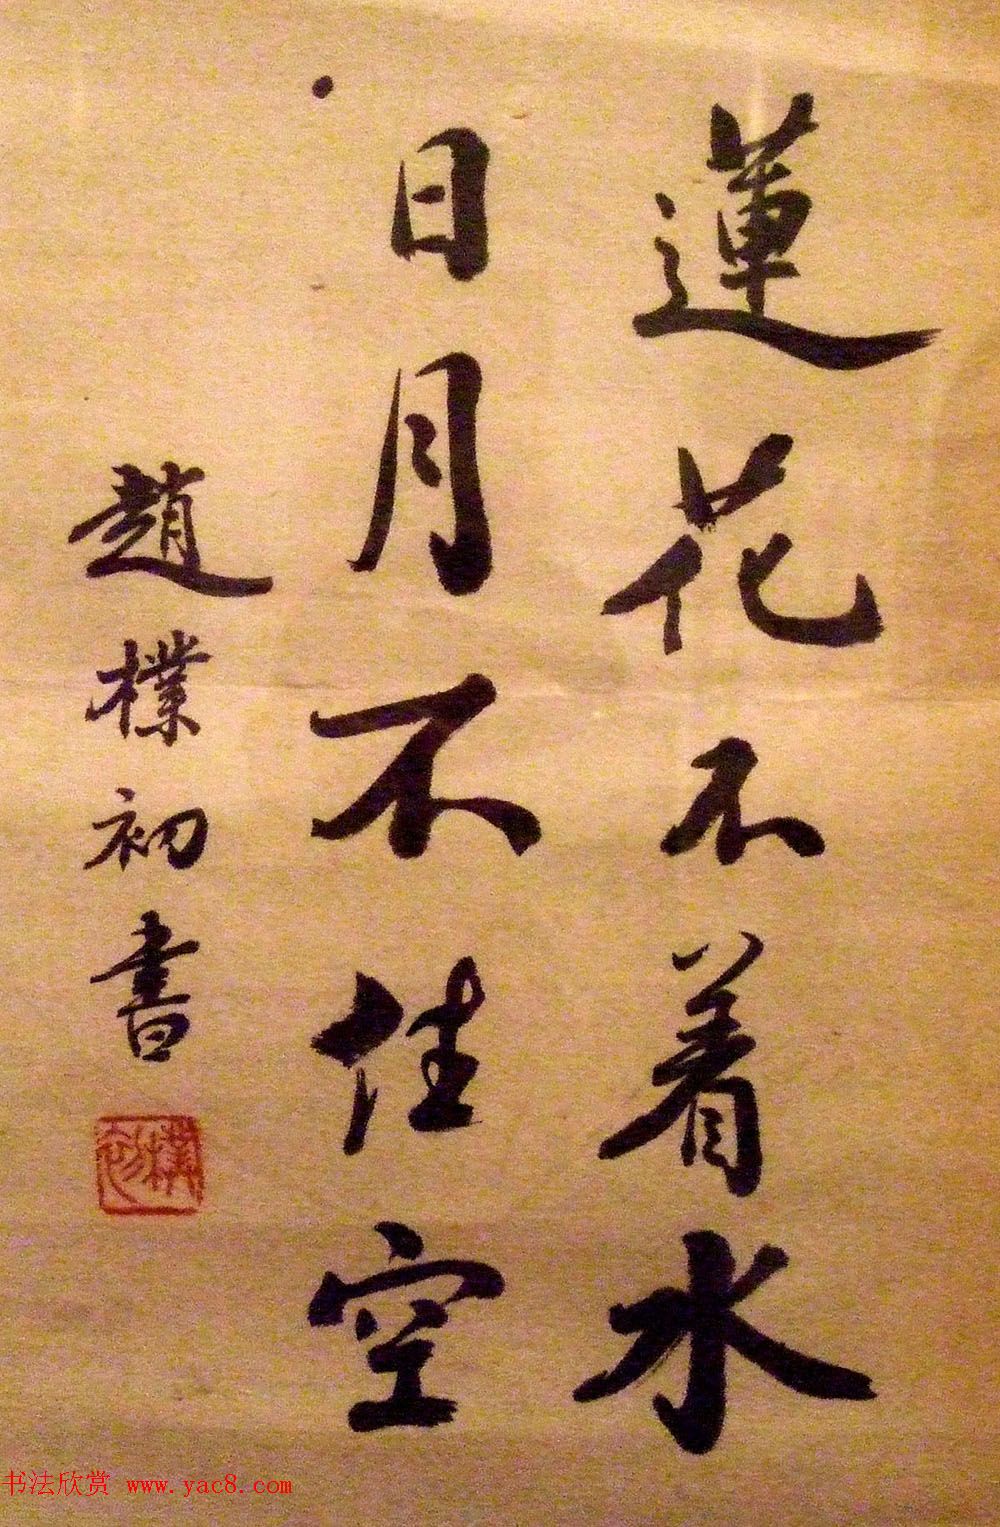 蓮花不着水
日月不住空
趙樸初書
樸初
书法欣赏 www.yac8.com